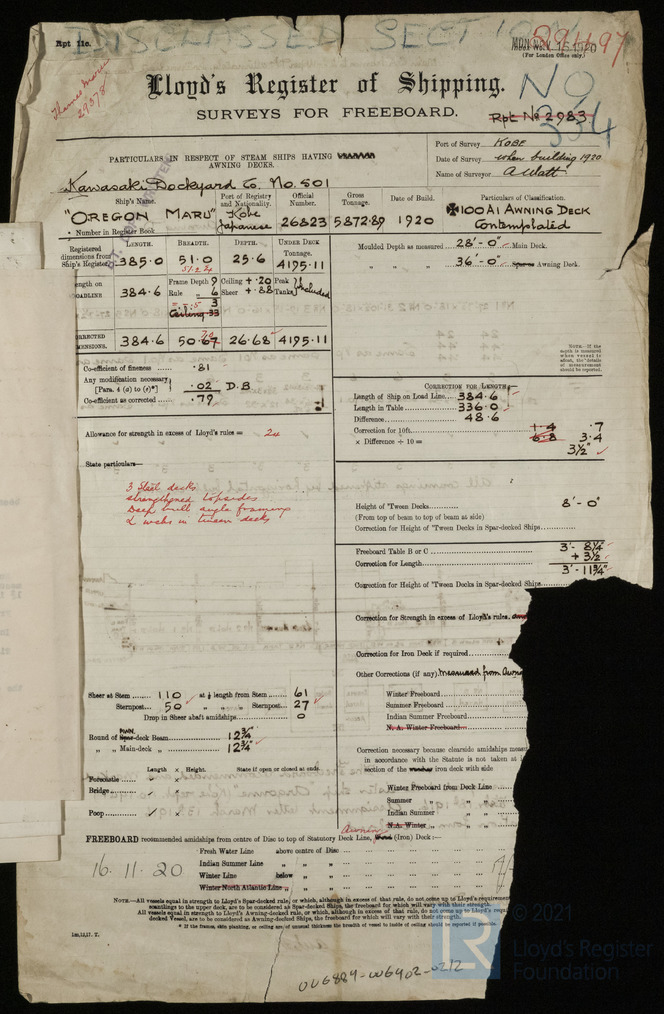 Rpt 11c.
DISCLASSED SECT 10
MON. NOV. 15 1920
291197
(For London Office only.)
Thames Maru
29878
Lloyd's Register of Shipping.
No
334
SURVEYS FOR FREEBOARD.
Rpt. No 2983
PARTICULARS IN RESPECT OF STEAM SHIPS HAVING
AWNING DECKS.
Port of Survey KOBE
Date of Survey when building 1920
Name of Surveyor A Watt
Kawasaki Dockyard Co. No. 501
Ship's Name. Port of Registry and Nationality. Official Number. Gross Tonnage. Date of Build. Particulars of Classification.
"OREGON MARU" Kobe Japanese 26823 5872.89 1920 ✠100A1 AWNING DECK Contemplated
• Number in Register Book
LENGTH. BREADTH. DEPTH. UNDER DECK TONNAGE.
Registered dimensions from Ship's Register 385.0 51.0 25.6 4195.11
51.2 24
Moulded Depth as measured 28'-0" Main Deck.
" " " 36'-0" Spar or Awning Deck.
LENGTH on LOADLINE 384.6 Frame Depth 9 Ceiling + .20 Peak Tanks Included
Rule " 6 Sheer + .88
3
Ceiling .33
CORRECTED DIMENSIONS. 384.6 50.67 26.68 4195.11
NOTE.—If the depth is measured when vessel is afloat, the details of measurement should be reported.
Co-efficient of fineness .81
Any modification necessary [Para. 4 (d) to (e)*] .02 D.B
Co-efficient as corrected .79
CORRECTION FOR LENGTH:
Length of Ship on Load Line 384.6
Length in Table 336.0
Difference 48.6
Correction for 10ft. .7
× Difference ÷ 10 = 3.4
3½"
Allowance for strength in excess of Lloyd's rules = 24
State particulars—
3 Steel decks
strengthened topsides
Deep bulb angle framing
2 webs in tween decks
Height of 'Tween Decks 8'-0"
(From top of beam to top of beam at side)
Correction for Height of 'Tween Decks in Spar-decked Ships
Freeboard Table B or C 3'-8¼"
Correction for Length + 3½
3'-11¾"
Correction for Height of 'Tween Decks in Spar-decked Ships
Correction for Strength in excess of Lloyd's rules.
Correction for Iron Deck if required
Other Corrections (if any) Measured from Awn
Sheer at Stem 110 at ¼ length from Stem 61
Sternpost 50 " " " Sternpost 27
Drop in Sheer abaft amidships 0
Round of Spar-deck Beam 12¾"
" " Main-deck " 12¾"
Winter Freeboard
Summer Freeboard
Indian Summer Freeboard
N.A. Winter Freeboard
Correction necessary because clearside amidships meas
in accordance with the Statute is not taken at
section of the iron deck with side
Length × Height. State if open or closed at ends.
Forecastle
Bridge
Poop
Winter Freeboard from Deck Line
Summer " "
Indian Summer "
N.A. Winter "
Awning
FREEBOARD recommended amidships from centre of Disc to top of Statutory Deck Line, Wood (Iron) Deck:—
16.11.20
Fresh Water Line above centre of Disc
Indian Summer Line " "
Winter Line below "
Winter North Atlantic Line "
NOTE.—All vessels equal in strength to Lloyd's Spar-decked rule, or which, although in excess of that rule, do not come up to Lloyd's requirement
scantlings to the upper deck, are to be considered as Spar-decked Ships, the freeboard for which will vary with their strength.
All vessels equal in strength to Lloyd's Awning-decked rule, or which, although in excess of that rule, do not come up to Lloyd's requ
decked Vessel, are to be considered as Awning-decked Ships, the freeboard for which will vary with their strength.
* If the frames, skin planking, or ceiling are of unusual thickness the breadth to inside of ceiling should be reported if possible.
1m.12.17. T.
006884-006902-0212
LR
© 2021
Lloyd's Register
Foundation